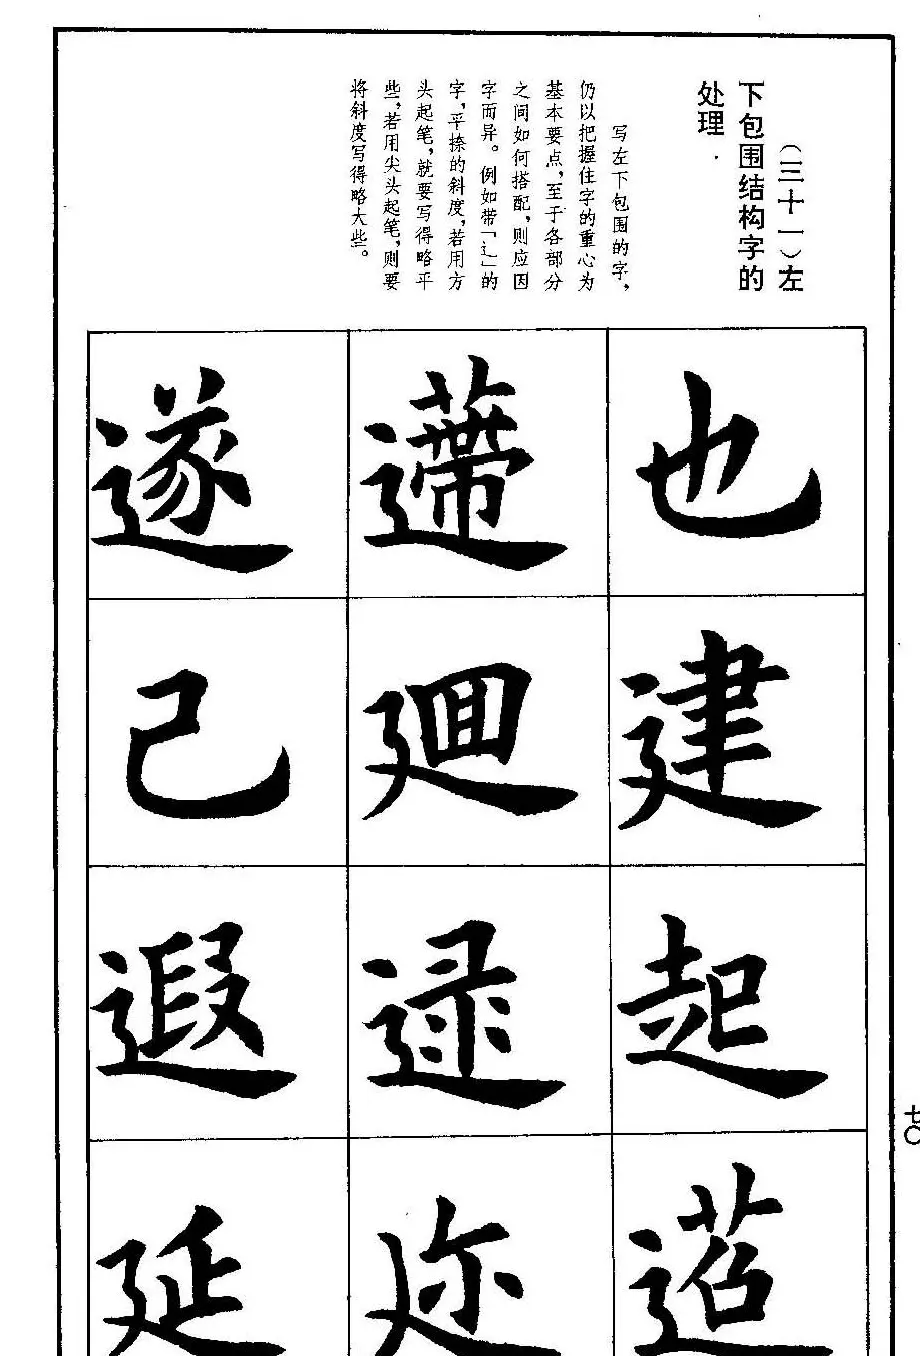 （三十一）左
下包围结构字的
处理
写左下包围的字，
仍以把握住字的重心为
基本要点，至于各部分
之间如何搭配，则应因
字而异。例如带「辶」的
字，平捺的斜度，若用方
头起笔，就要写得略平
些，若用尖头起笔，则要
将斜度写得略大些。
也
建
起
迴
逯
遂
己
遐
延
七〇